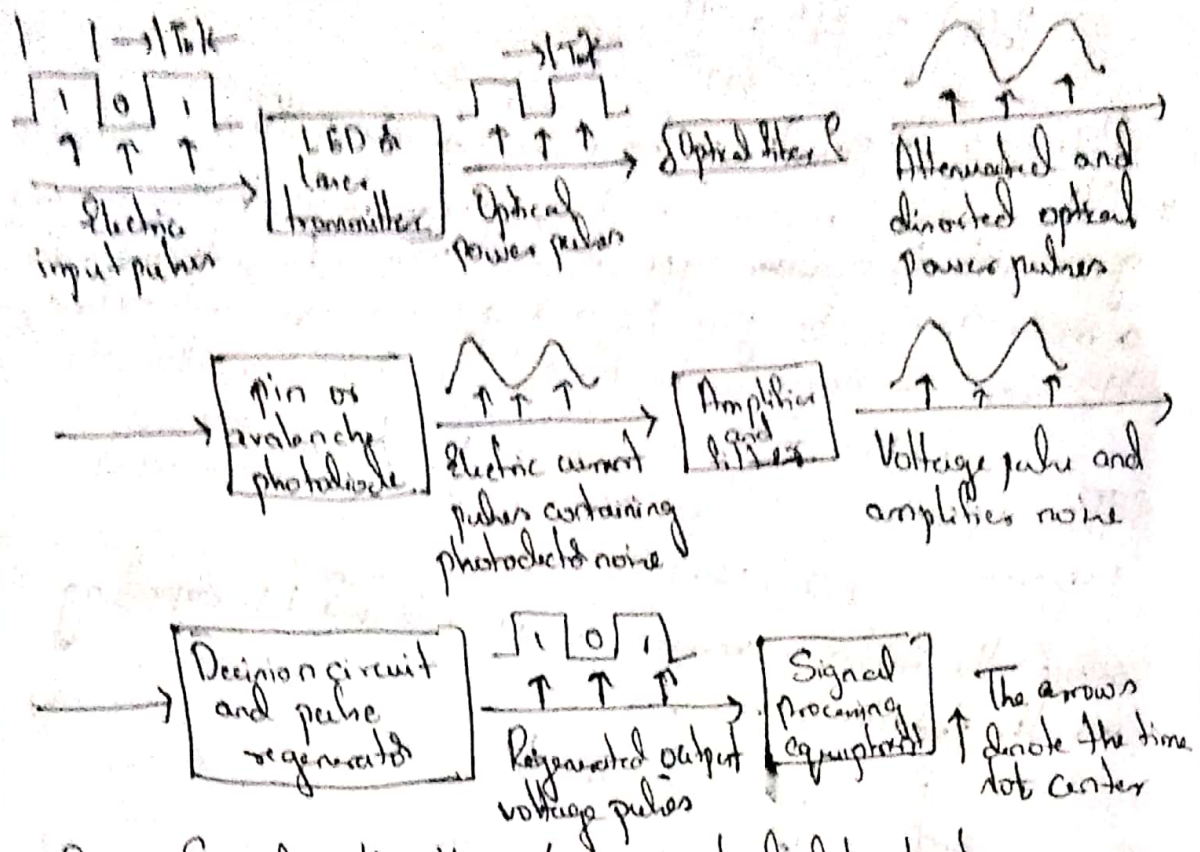 →|Tb|←
1 0 1
Electric
input pulses
LED or
laser
transmitter
→|Tb|←
Optical
power pulses
Optical fiber
Attenuated and
distorted optical
power pulses
pin or
avalanche
photodiode
Electric current
pulses containing
photodetector noise
Amplifier
and
filter
Voltage pulse and
amplifier noise
Decision circuit
and pulse
regenerator
1 0 1
Regenerated output
voltage pulses
Signal
processing
equipment
↑ The arrows
denote the time
slot center